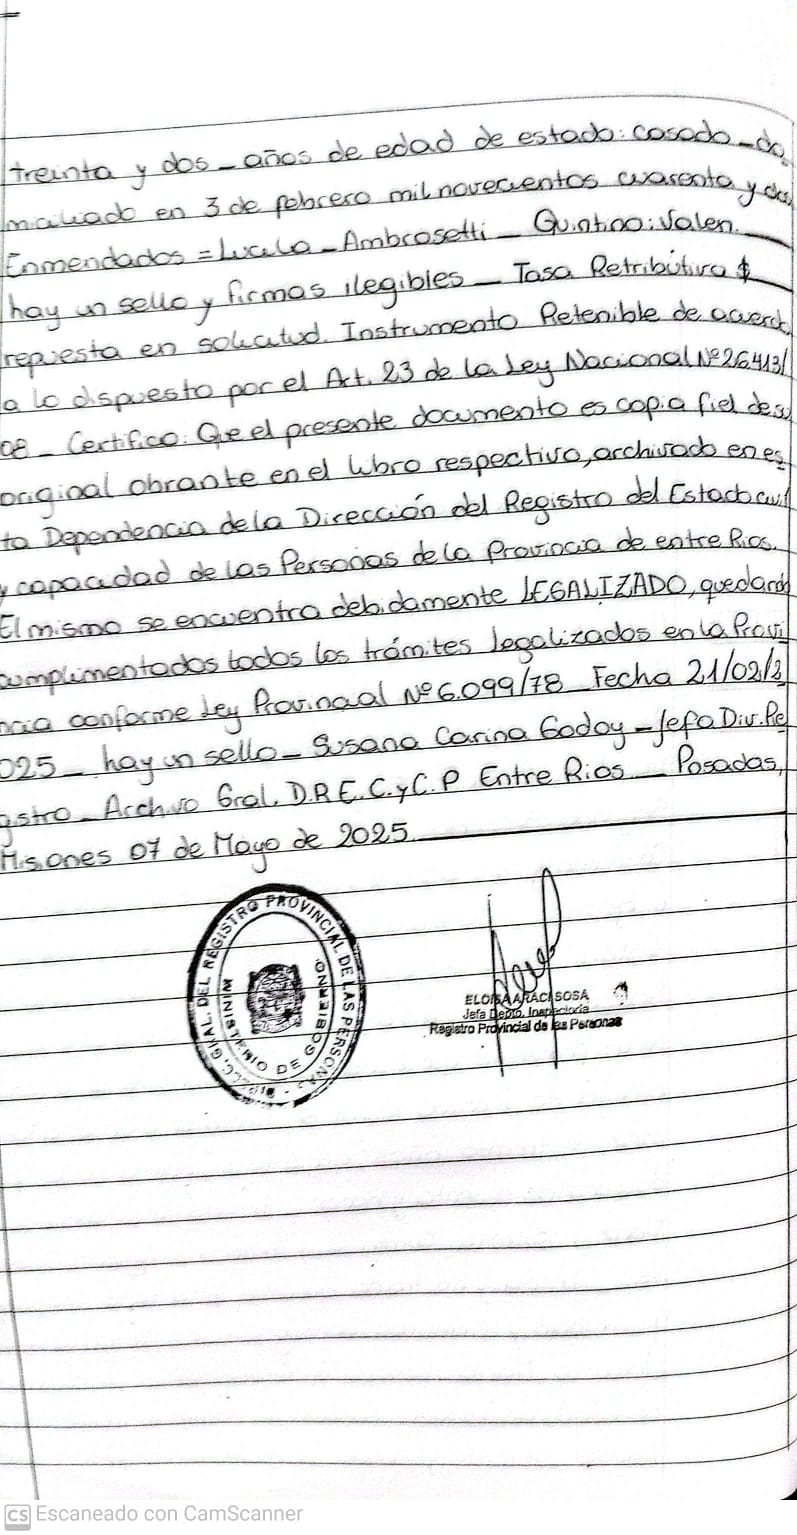 treinta y dos_ años de edad de estado: casado_do
miciliado en 3 de febrero mil novecientos cuarenta y dos
Enmendados = Lucila_ Ambrosetti_ Quintino: Valen.
hay un sello y firmas ilegibles_ Tasa Retributiva $
repuesta en solicitud. Instrumento Retenible de acuerdo
a lo dispuesto por el Art. 23 de la Ley Nacional Nº 26.413/
08_ Certifico: Que el presente documento es copia fiel de su
original obrante en el libro respectivo, archivado en es
ta Dependencia de la Dirección del Registro del Estado civil
y capacidad de las Personas de la Provincia de entre Rios.
El mismo se encuentra debidamente LEGALIZADO, quedando
cumplimentados todos los trámites legalizados en la Provi
ncia conforme Ley Provincial Nº 6.099/78_ Fecha 21/02/2
025_ hay un sello_ Susana Carina Godoy_ Jefa Div. Re
gistro_ Archivo Gral. D.R.E.C.yC.P Entre Rios_ Posadas,
Misiones 07 de Mayo de 2025.
GRAL. DEL REGISTRO PROVINCIAL DE LAS PERSONAS
MINISTERIO DE GOBIERNO
ELOISA ARACI SOSA
Jefa Depto. Inspectoria
Registro Provincial de las Personas
CS Escaneado con CamScanner